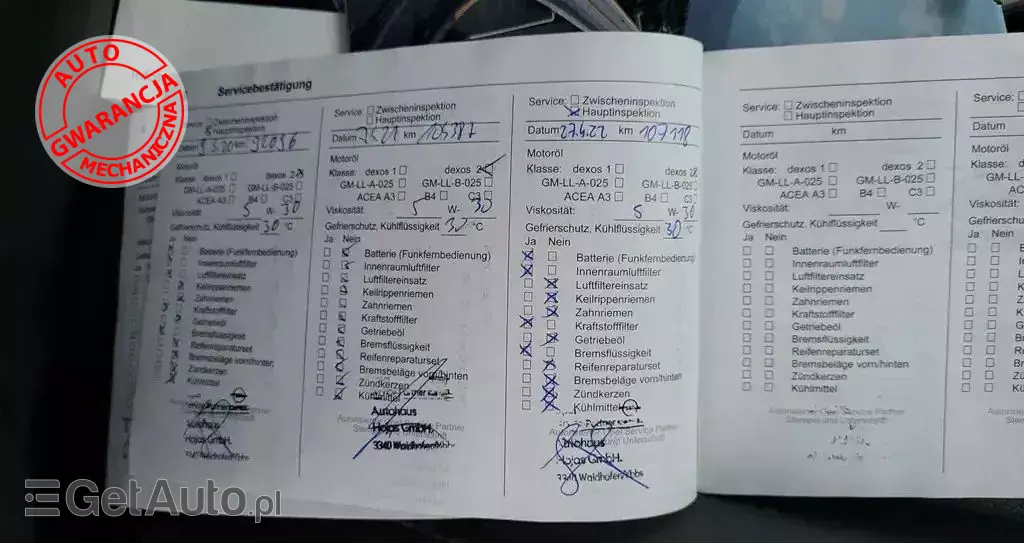 AUTO
GWARANCJA
MECHANICZNA
Servicebestätigung
Hauptinspektion
Datum
km 92096
Motoröl
Klasse: dexos 1 dexos 2
GM-LL-A-025 GM-LL-B-025
ACEA A3 B4 C3
Viskosität: 5 W-30
Gefrierschutz, Kühlflüssigkeit 30 °C
Ja Nein
Batterie (Funkfernbedienung)
Innenraumluftfilter
Luftfiltereinsatz
Keilrippenriemen
Zahnriemen
Kraftstofffilter
Getriebeöl
Bremsflüssigkeit
Reifenreparaturset
Bremsbeläge vorn/hinten
Zündkerzen
Kühlmittel
Autohaus
Hojas GmbH.
Waidhofen/Ybbs
Service: Zwischeninspektion
Hauptinspektion
Datum km
Motoröl
Klasse: dexos 1 dexos 2
GM-LL-A-025 GM-LL-B-025
ACEA A3 B4 C3
Viskosität: 5 W- 30
Gefrierschutz, Kühlflüssigkeit 30 °C
Ja Nein
Batterie (Funkfernbedienung)
Innenraumluftfilter
Luftfiltereinsatz
Keilrippenriemen
Zahnriemen
Kraftstofffilter
Getriebeöl
Bremsflüssigkeit
Reifenreparaturset
Bremsbeläge vorn/hinten
Zündkerzen
Kühlmittel
Autohaus
Hojas GmbH.
3340 Waidhofen/Ybbs
Service: Zwischeninspektion
Hauptinspektion
Datum 27.4.22 km 107118
Motoröl
Klasse: dexos 1 dexos 2
GM-LL-A-025 GM-LL-B-025
ACEA A3 B4 C3
Viskosität: 5 W-30
Gefrierschutz, Kühlflüssigkeit 30 °C
Ja Nein
Batterie (Funkfernbedienung)
Innenraumluftfilter
Luftfiltereinsatz
Keilrippenriemen
Zahnriemen
Kraftstofffilter
Getriebeöl
Bremsflüssigkeit
Reifenreparaturset
Bremsbeläge vorn/hinten
Zündkerzen
Kühlmittel
Autohaus
Hojas GmbH.
3340 Waidhofen/Ybbs
Service: Zwischeninspektion
Hauptinspektion
Datum km
Motoröl
Klasse: dexos 1 dexos 2
GM-LL-A-025 GM-LL-B-025
ACEA A3 B4 C3
Viskosität: W-
Gefrierschutz, Kühlflüssigkeit °C
Ja Nein
Batterie (Funkfernbedienung)
Innenraumluftfilter
Luftfiltereinsatz
Keilrippenriemen
Zahnriemen
Kraftstofffilter
Getriebeöl
Bremsflüssigkeit
Reifenreparaturset
Bremsbeläge vorn/hinten
Zündkerzen
Kühlmittel
Autorisierter Opel Service Partner
Stempel und Unterschrift
Service:
Datum
Motoröl
Klasse:
Viskosität:
Gefrierschutz,
Ja Nein
GetAuto.pl